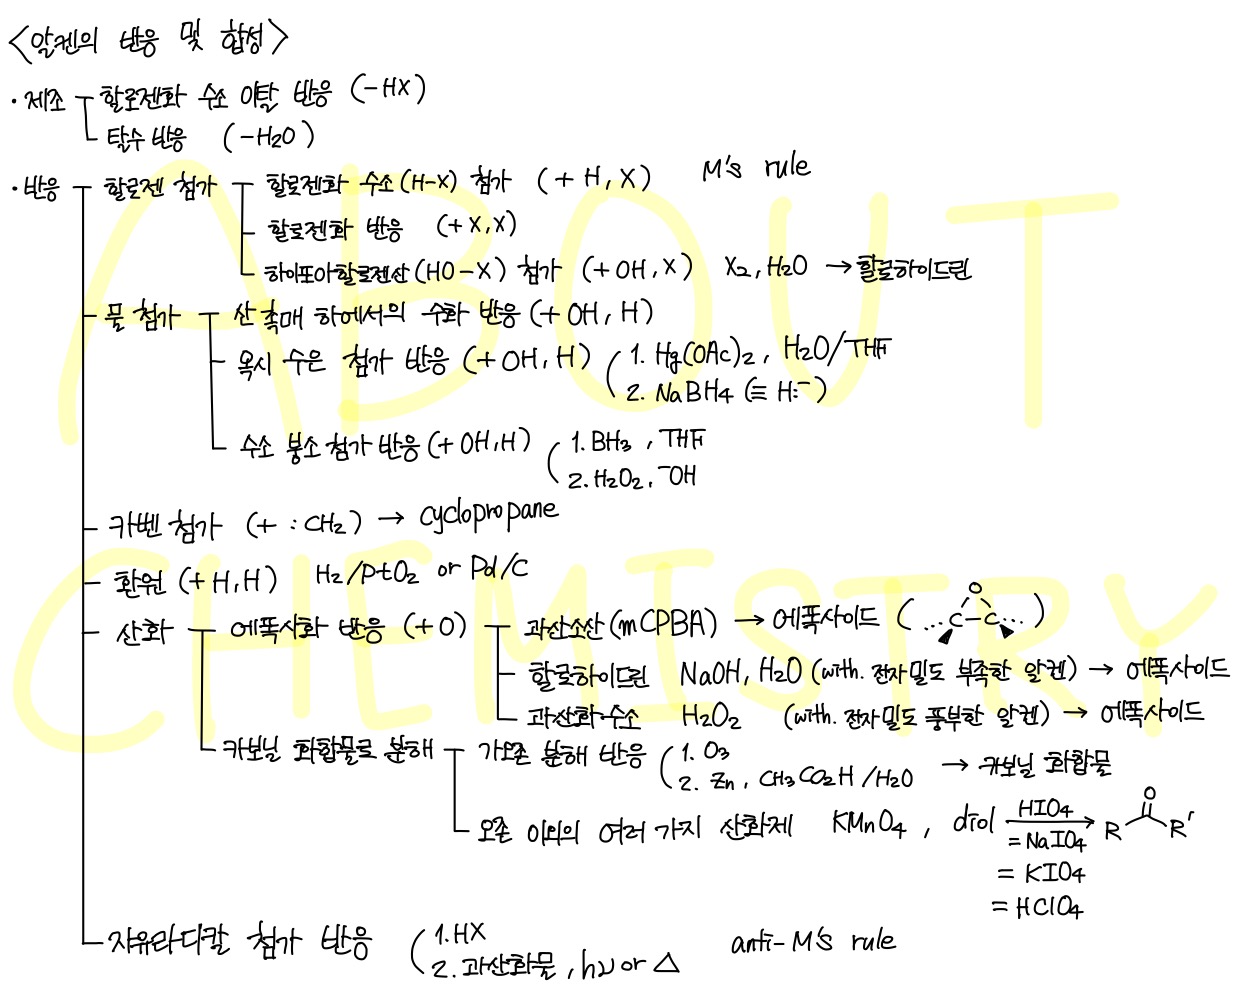 <알켄의 반응 및 합성>
· 제조 할로젠화 수소 이탈 반응 (-HX)
탈수 반응 (-H2O)
· 반응 할로젠 첨가 할로젠화 수소(H-X) 첨가 (+H, X) M's rule
할로젠화 반응 (+X,X)
하이포아할로젠산(HO-X) 첨가 (+OH, X) X2, H2O → 할로하이드린
물 첨가 산 촉매 하에서의 수화 반응 (+OH, H)
옥시 수은 첨가 반응 (+OH, H) 1. Hg(OAc)2, H2O/THF
2. NaBH4 (≡ H:-)
수소 붕소 첨가 반응 (+OH,H) 1. BH3, THF
2. H2O2, -OH
카벤 첨가 (+ :CH2) → cyclopropane
환원 (+H,H) H2/PtO2 or Pd/C
산화 에폭시화 반응 (+O) 과산소산(mCPBA) → 에폭사이드 ( ...C-C... O )
할로하이드린 NaOH, H2O (with. 전자밀도 부족한 알켄) → 에폭사이드
과산화수소 H2O2 (with. 전자밀도 풍부한 알켄) → 에폭사이드
카보닐 화합물로 분해 가오존 분해 반응 1. O3
2. Zn, CH3CO2H/H2O → 카보닐 화합물
오존 이외의 여러 가지 산화제 KMnO4, diol HIO4 → R O R'
= NaIO4
= KIO4
= HClO4
자유라디칼 첨가 반응 1. HX anti-M's rule
2. 과산화물, hν or △
ABOUT
CHEMISTRY